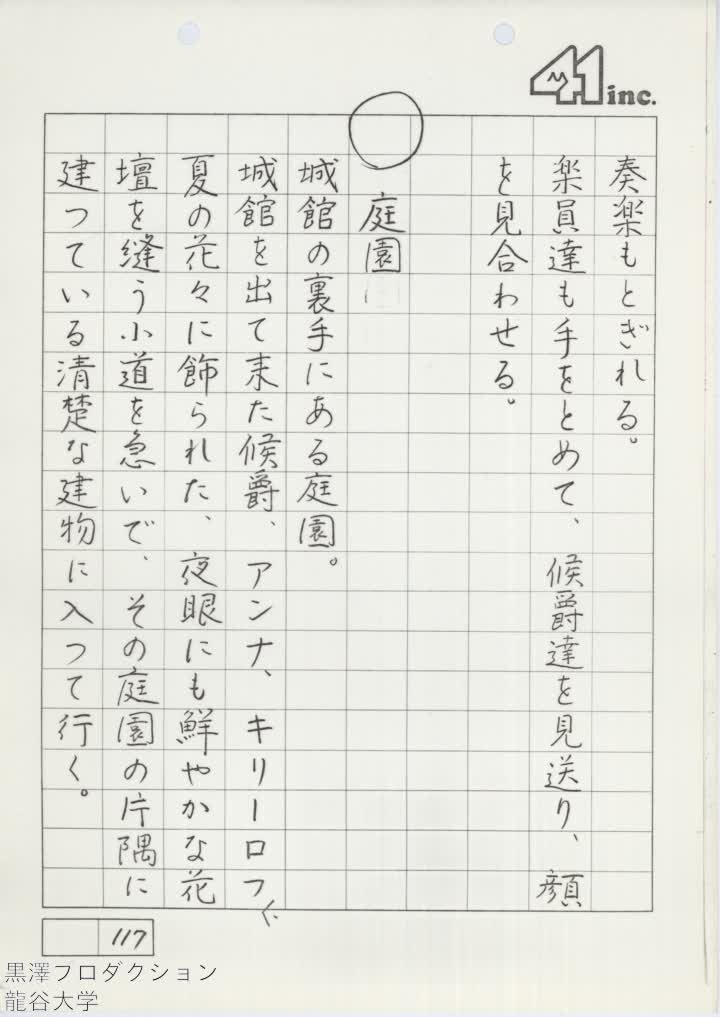 41 inc.
奏楽もとぎれる。
楽員達も手をとめて、候爵達を見送り、顔
を見合わせる。
○庭園
城館の裏手にある庭園。
城館を出て来た候爵、アンナ、キリーロフ
夏の花々に飾られた、夜眼にも鮮やかな花
壇を縫う小道を急いで、その庭園の片隅に
建つている清楚な建物に入つて行く。
117
黒澤プロダクション
龍谷大学